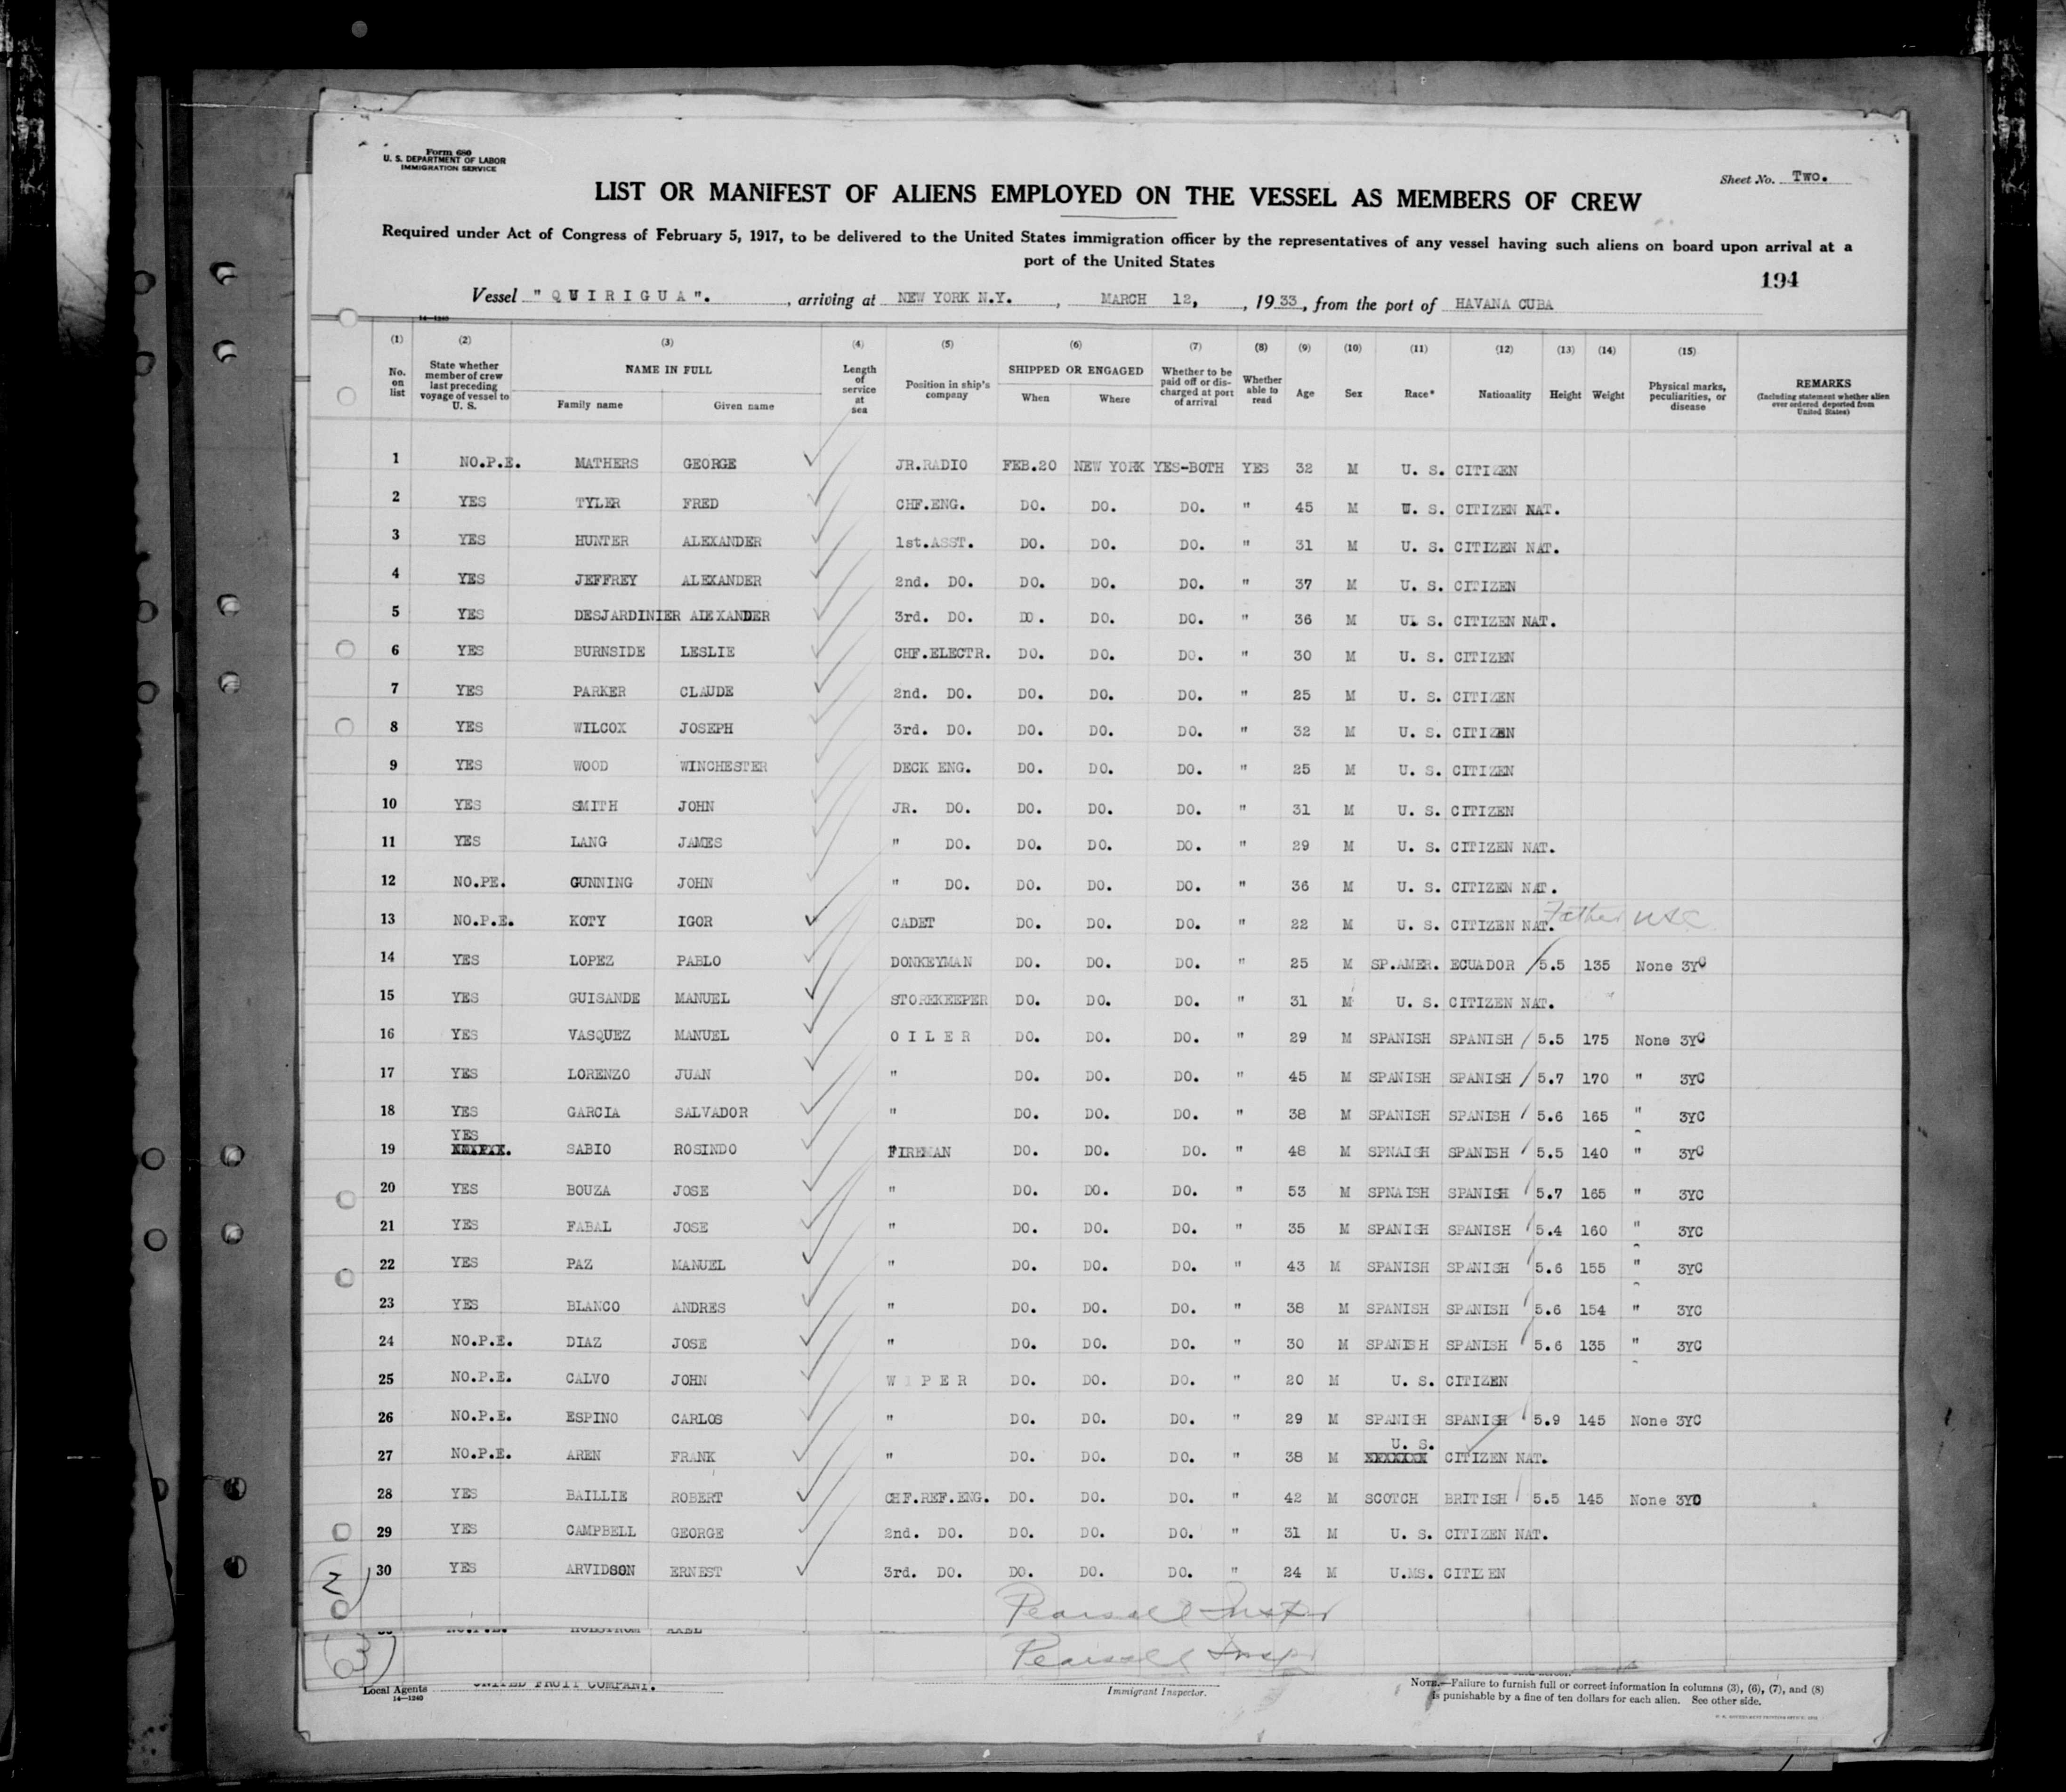 Form 680
U. S. DEPARTMENT OF LABOR
IMMIGRATION SERVICE
Sheet No. Two.
LIST OR MANIFEST OF ALIENS EMPLOYED ON THE VESSEL AS MEMBERS OF CREW
Required under Act of Congress of February 5, 1917, to be delivered to the United States immigration officer by the representatives of any vessel having such aliens on board upon arrival at a
port of the United States
194
Vessel "QUIRIGUA"., arriving at NEW YORK N.Y., MARCH 12, 1933, from the port of HAVANA CUBA
14—1240
(1) (2) (3) (4) (5) (6) (7) (8) (9) (10) (11) (12) (13) (14) (15)
No. on list | State whether member of crew last preceding voyage of vessel to U. S. | NAME IN FULL Family name Given name | Length of service at sea | Position in ship's company | SHIPPED OR ENGAGED When Where | Whether to be paid off or discharged at port of arrival | Whether able to read | Age | Sex | Race* | Nationality | Height | Weight | Physical marks, peculiarities, or disease | REMARKS (Including statement whether alien ever ordered deported from United States)
1 NO.P.E. MATHERS GEORGE JR.RADIO FEB.20 NEW YORK YES-BOTH YES 32 M U. S. CITIZEN
2 YES TYLER FRED CHF.ENG. DO. DO. DO. " 45 M U. S. CITIZEN NAT.
3 YES HUNTER ALEXANDER 1st.ASST. DO. DO. DO. " 31 M U. S. CITIZEN NAT.
4 YES JEFFREY ALEXANDER 2nd. DO. DO. DO. DO. " 37 M U. S. CITIZEN
5 YES DESJARDINIER ALEXANDER 3rd. DO. DO. DO. DO. " 36 M U. S. CITIZEN NAT.
6 YES BURNSIDE LESLIE CHF.ELECTR. DO. DO. DO. " 30 M U. S. CITIZEN
7 YES PARKER CLAUDE 2nd. DO. DO. DO. DO. " 25 M U. S. CITIZEN
8 YES WILCOX JOSEPH 3rd. DO. DO. DO. DO. " 32 M U. S. CITIZEN
9 YES WOOD WINCHESTER DECK ENG. DO. DO. DO. " 25 M U. S. CITIZEN
10 YES SMITH JOHN JR. DO. DO. DO. DO. " 31 M U. S. CITIZEN
11 YES LANG JAMES " DO. DO. DO. DO. " 29 M U. S. CITIZEN NAT.
12 NO.PE. GUNNING JOHN " DO. DO. DO. DO. " 36 M U. S. CITIZEN NAT.
13 NO.P.E. KOTY IGOR CADET DO. DO. DO. " 22 M U. S. CITIZEN NAT. Father USC
14 YES LOPEZ PABLO DONKEYMAN DO. DO. DO. " 25 M SP.AMER. ECUADOR 5.5 135 None 3YC
15 YES GUISANDE MANUEL STOREKEEPER DO. DO. DO. " 31 M U. S. CITIZEN NAT.
16 YES VASQUEZ MANUEL OILER DO. DO. DO. " 29 M SPANISH SPANISH 5.5 175 None 3YC
17 YES LORENZO JUAN " DO. DO. DO. " 45 M SPANISH SPANISH 5.7 170 " 3YC
18 YES GARCIA SALVADOR " DO. DO. DO. " 38 M SPANISH SPANISH 5.6 165 " 3YC
19 YES SABIO ROSINDO FIREMAN DO. DO. DO. " 48 M SPNAISH SPANISH 5.5 140 " 3YC
20 YES BOUZA JOSE " DO. DO. DO. " 53 M SPNAISH SPANISH 5.7 165 " 3YC
21 YES FABAL JOSE " DO. DO. DO. " 35 M SPANISH SPANISH 5.4 160 " 3YC
22 YES PAZ MANUEL " DO. DO. DO. " 43 M SPANISH SPANISH 5.6 155 " 3YC
23 YES BLANCO ANDRES " DO. DO. DO. " 38 M SPANISH SPANISH 5.6 154 " 3YC
24 NO.P.E. DIAZ JOSE " DO. DO. DO. " 30 M SPANISH SPANISH 5.6 135 " 3YC
25 NO.P.E. CALVO JOHN WIPER DO. DO. DO. " 20 M U. S. CITIZEN
26 NO.P.E. ESPINO CARLOS " DO. DO. DO. " 29 M SPANISH SPANISH 5.9 145 None 3YC
27 NO.P.E. AREN FRANK " DO. DO. DO. " 38 M U. S. CITIZEN NAT.
28 YES BAILLIE ROBERT CHF.REF.ENG. DO. DO. DO. " 42 M SCOTCH BRITISH 5.5 145 None 3YC
29 YES CAMPBELL GEORGE 2nd. DO. DO. DO. DO. " 31 M U. S. CITIZEN NAT.
30 YES ARVIDSON ERNEST 3rd. DO. DO. DO. DO. " 24 M U.MS. CITIZEN
Pearsall Inspr
Pearsall Insp
Local Agents UNITED FRUIT COMPANY.
14—1240
Immigrant Inspector.
NOTE.—Failure to furnish full or correct information in columns (3), (6), (7), and (8)
is punishable by a fine of ten dollars for each alien. See other side.